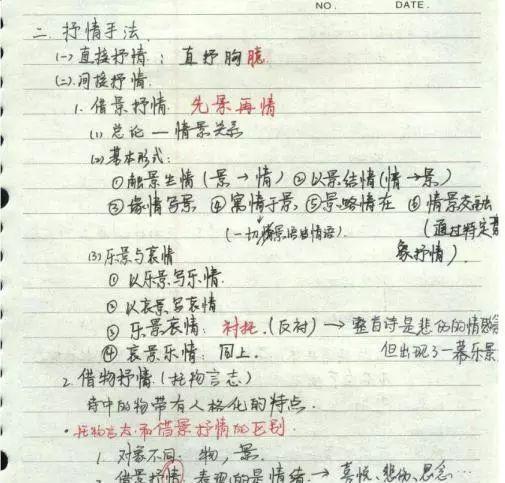 NO. DATE.
二、抒情手法
(一)直接抒情：直抒胸臆
(二)间接抒情.
1. 借景抒情. 先景再情
(1) 总论 — 情景关系
(2) 基本形式：
①融景生情(景→情) ②以景结情(情→景)
③缘情写景 ④寓情于景 ⑤景略情在 ⑥情景交融
(一切景语皆情语). (通过特定意
象抒情).
(3) 乐景与哀情
① 以乐景写乐情.
② 以哀景写哀情
③ 乐景哀情：衬托.(反衬) → 整首诗是悲伤的情感
④ 哀景乐情：同上. 但出现了一幕乐景
2. 借物抒情(托物言志)
诗中的物带有人格化的特点.
·托物言志和借景抒情的区别
1. 对象不同. 物，景.
2. 借景抒情 表现的是情绪. → 喜悦、悲伤、思念…